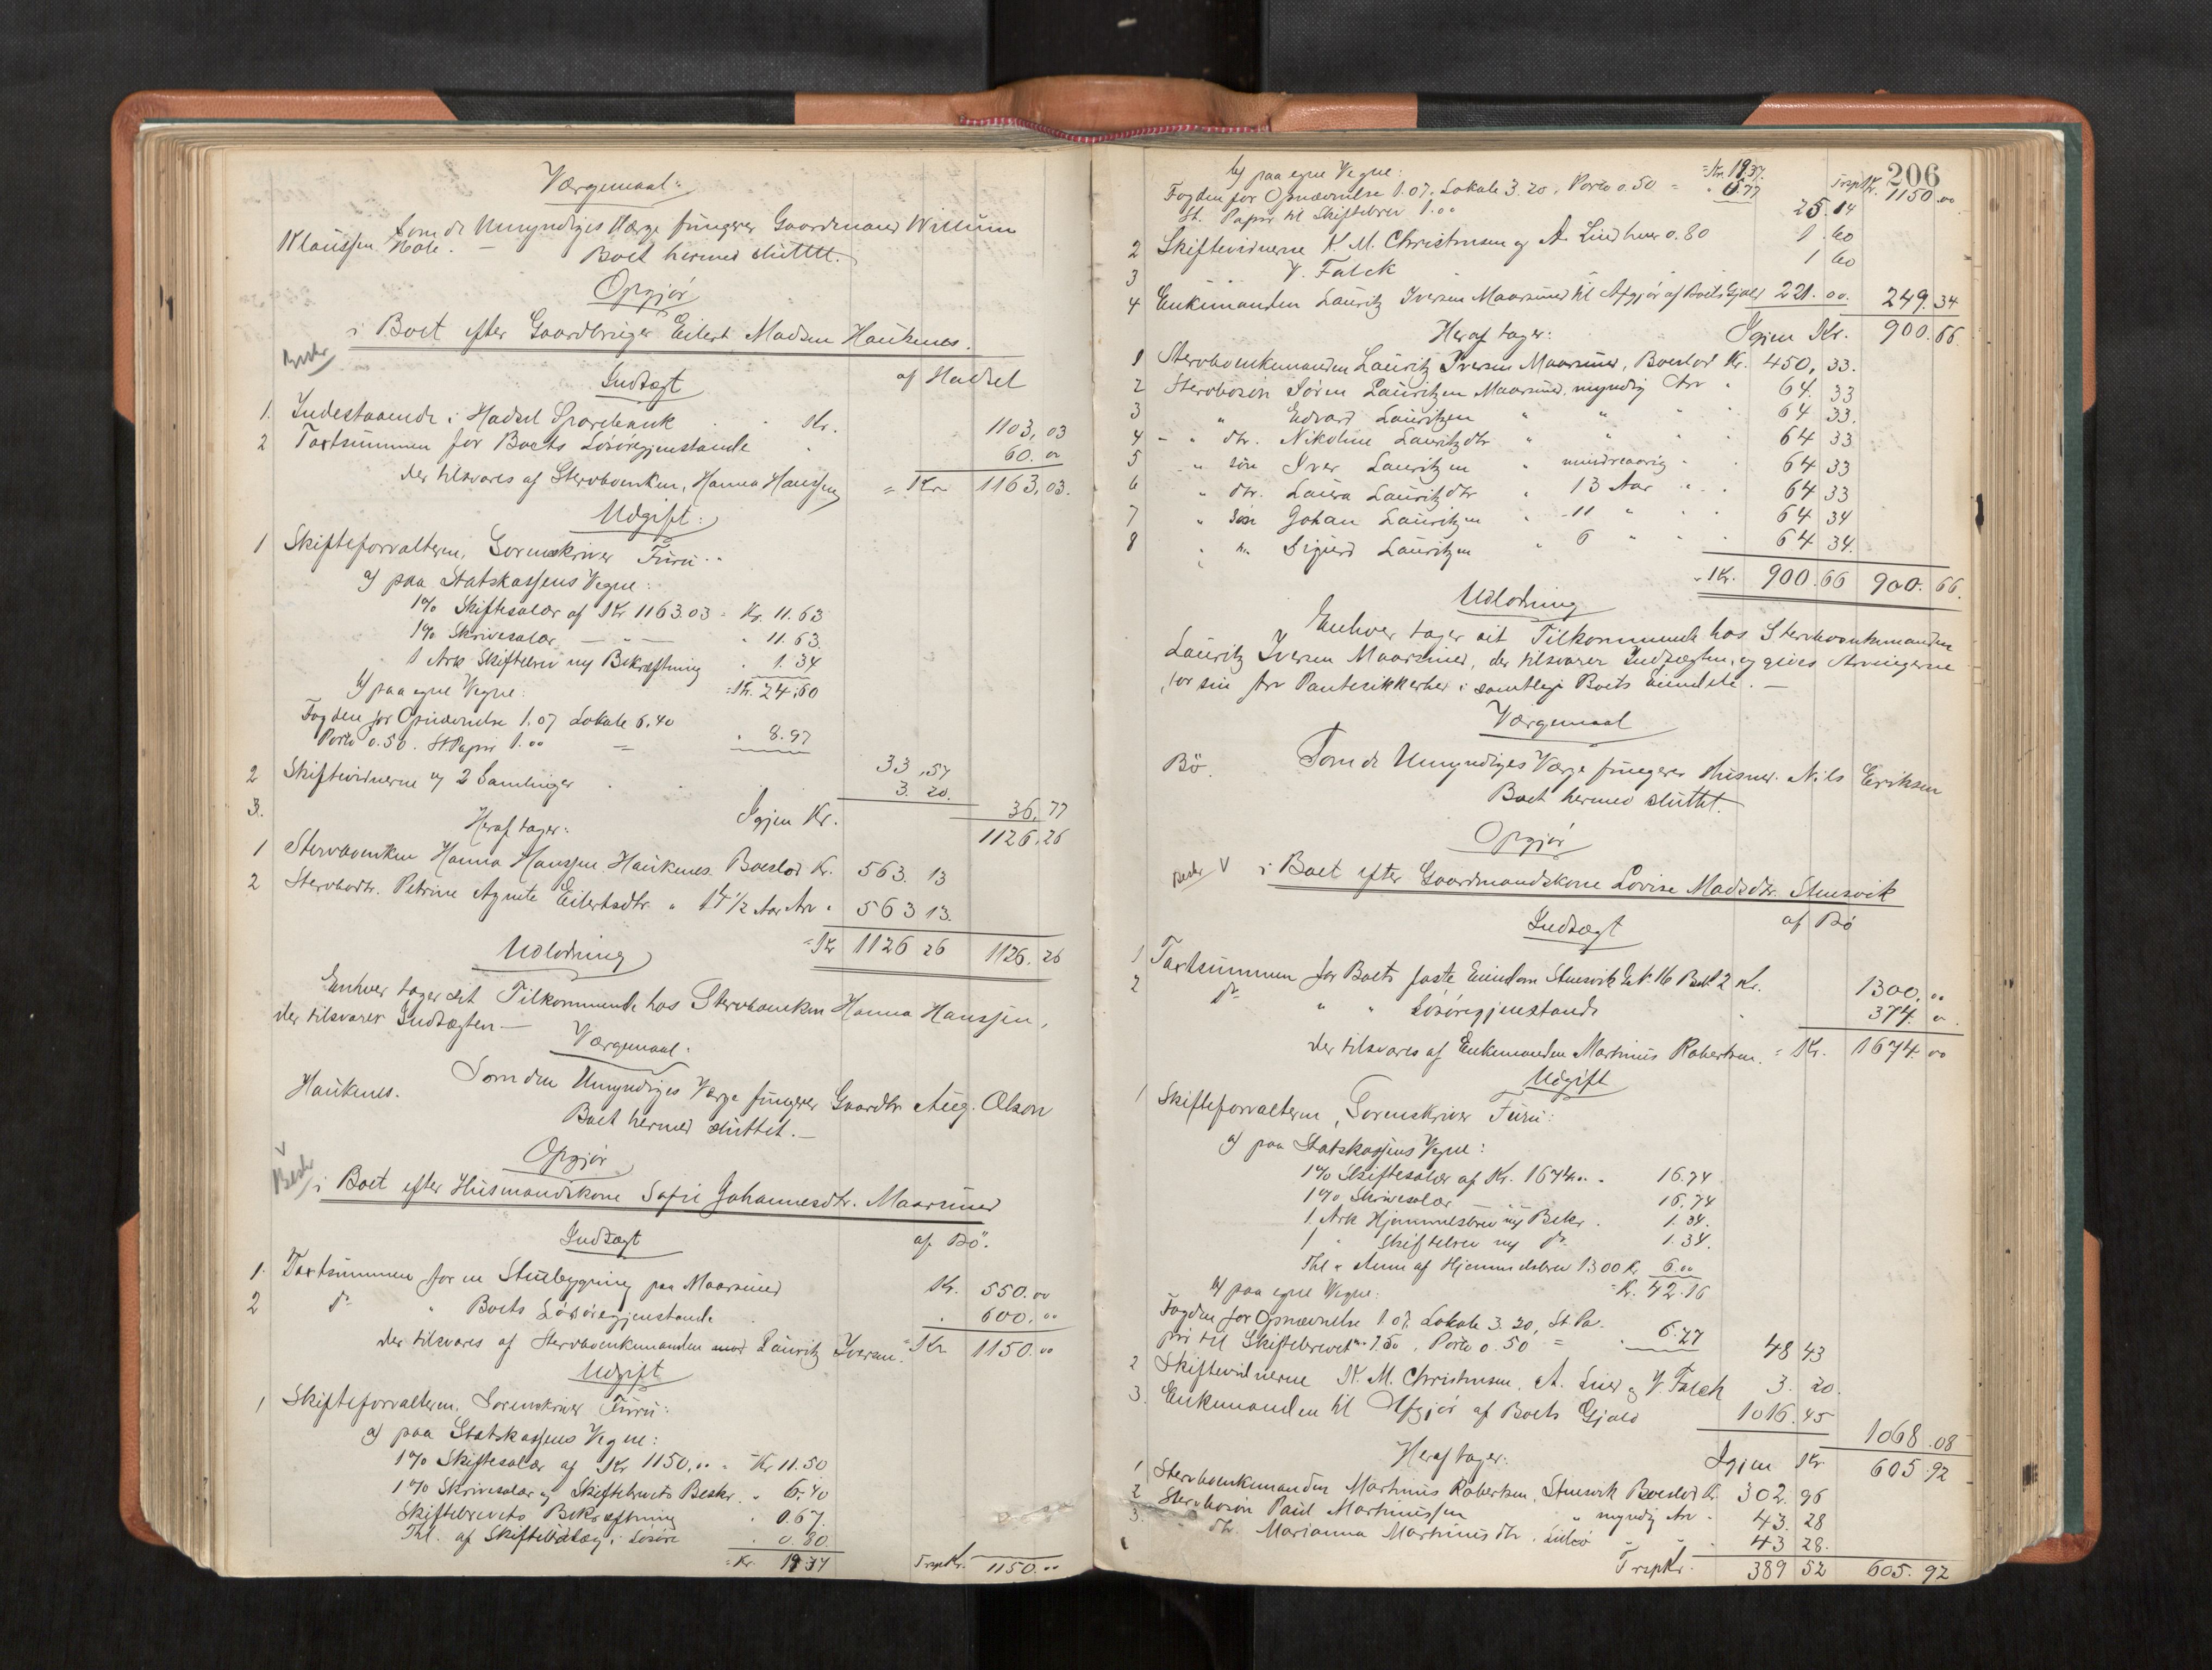 Værgemaal:
Som de Umyndiges Værge fungerer Gaardmand Willum
Klaussen Hole. — Boet hermed sluttet.
Opgjør
i Boet efter Gaardbruger Eilert Madsen Haukenes.
Beskr
Indtægt af Hadsel
1. Indestaaende i Hadsel Sparebank . . Kr. 1103,03
2 Taxtsummen for Boets Løsøregjenstande " 60.00
der tilsvares af Stervboenken, Hanna Hanssen = Kr 1163,03.
Udgift:
1 Skifteforvalteren, Sorenskriver Furu:
a) paa Statskassens Vegne:
1% Skiftesalær af Kr 1163.03 = Kr. 11.63
1% Skrivesalær — " — " 11.63.
1 Ark Skiftebrev og Bekræftning . 1.34
b) paa egne Vegne: = Kr. 24.60
Fogden for Opnævnelse 1.07 Lokale 6,40
Porto 0.50. St Papir 1.00 = " 8.97
33,57
2 Skiftevidnerne og 2 Samlinger . . 3.20.
3. 36,77
Heraf tager: Igjen Kr. 1126,26
1 Stervboenken Hanna Hanssen Haukenes Boeslod Kr. 563.13
2 Stervbodtr. Petrine Agnete Eilertsdtr. " 14 1/2 Aar Arv " 563 13.
= Kr 1126 26 1126.26
Udlodning
Enhver tager sit Tilkommende hos Stervboenken Hanna Hanssen,
der tilsvarer Indtægten —
Værgemaal:
Som den Umyndiges Værge fungerer Gaardbr Aug. Olson
Haukenes. Boet hermed sluttet. —
Opgjør
V
Beskr
i Boet efter Husmandskone Sofie Johannesdtr. Maarsund
Indtægt af Bö.
1. Taxtsummen for en Stuebygning paa Maarsund Kr. 550.00
2 do " Boets Løsøregjenstande . . 600.00
der tilsvares af Stervboenkemanden Lauritz Iversen. = Kr 1150.00
Udgift
1 Skifteforvalteren, Sorenskriver Furu:
a) paa Statskassens Vegne:
1% Skiftesalær af Kr 1150,00 = Kr 11.50
1% Skrivesalær og Skiftebrevets Beskr. " 6.40
Skiftebrevets Bekræftning . 0.67.
Thl. af Skifteudlæg i Løsøre . 0.80.
= Kr. 19 37 Trsp Kr. 1150.00
206
b) paa egne Vegne: = Kr. 19 37. Trsp Kr. 1150.00
Fogden for Opnævnelse 1.07, Lokale 3.20, Porto 0.50 = " 5.77
St. Papir til Skiftebrev 1.00 25.14
2 Skiftevidnerne K. M. Christensen og A. Lind hver 0.80 1.60
3 V. Falck 1 60
4 Enkemanden Lauritz Iversen Maarsund til Afgjør af Boets Gjæld 221.00. 249.34
Heraf tager: Igjen Kr. 900.66
1 Stervboenkemanden Lauritz Iversen Maarsund, Boeslod Kr. 450,33.
2 Stervbosön Sören Lauritzen Maarsund, myndig Arv " 64.33
3 " Edvard Lauritzen " " " 64 33.
4 - " dtr. Nikoline Lauritzdtr " " " 64 33
5 " sön Iver Lauritzen " mindreaarig " 64 33
6 " dtr. Laura Lauritzdtr " 13 Aar " 64 33
7 " sön Johan Lauritzen " 11 " " 64 34
8 " " Sigurd Lauritzen " 6 " " 64 34.
= Kr. 900.66 900.66.
Udlodning
Enhver tager sit Tilkommende hos Stervboenkemanden
Lauritz Iversen Maarsund, der tilsvarer Indtægten, og gives Arvingerne
for sin Arv Pantesikkerhed i samtlige Boets Eiendele. —
Værgemaal
Som de Umyndiges Værge fungerer Husmd. Nils Eriksen
Bö. Boet hermed sluttet.
Opgjør
Beskr V
i Boet efter Gaardmandskone Lovise Madsdtr. Stensvik
Indtægt af Bö
1 Taxtsummen for Boets faste Eiendom Stensvik G.N. 16 B.N. 2 Kr. 1300.00
2 do " " Løsøregjenstande . 374.00.
der tilsvares af Enkemanden Martinus Robertsen. = Kr. 1674.00
Udgift
1 Skifteforvalteren, Sorenskriver Furu:
a) paa Statskassens Vegne:
1% Skiftesalær af Kr. 1674.00 . 16.74
1% Skrivesalær — " — 16,74
1. Ark Hjemmelsbrev og Bekr. . 1.34.
1 " Skiftebrev og do 1.34.
Thl. & Anm af Hjemmelsbrev 1300 Kr 6.00
b) paa egne Vegne: = Kr. 42.16
Fogden for Opnævnelse 1.07. Lokale 3.20, St Pa-
pir til Skiftebrevet 1.50, Porto 0.50 = . 6.27 48 43
2 Skiftevidnerne K. M. Christensen, A. Lind og V. Falck 3.20.
3. Enkemanden til Afgjør af Boets Gjæld 1016.45
1068.08
Heraf tager: Igjen Kr 605.92
1 Stervboenkemanden Martinus Robertsen, Stensvik Boeslod Kr. 302.96
2 Stervbosön Paul Martinussen " myndig Arv . 43.28
3. " dtr. Marianna Martinusdtr. " " . 43 28.
Trsp Kr. 389 52 605.92